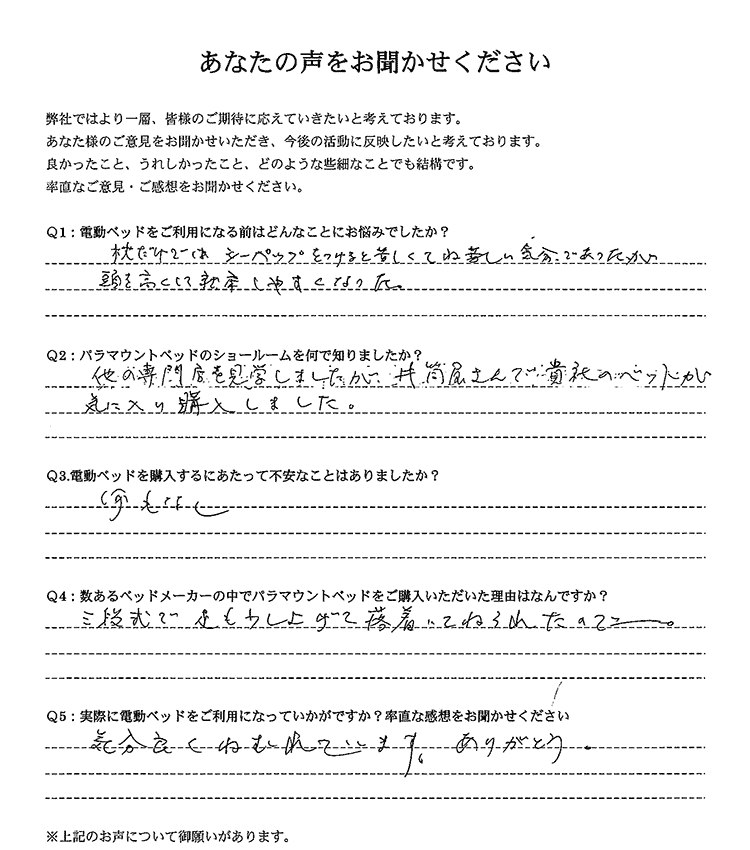 あなたの声をお聞かせください
弊社ではより一層、皆様のご期待に応えていきたいと考えております。
あなた様のご意見をお聞かせいただき、今後の活動に反映したいと考えております。
良かったこと、うれしかったこと、どのような些細なことでも結構です。
率直なご意見・ご感想をお聞かせください。
Q1：電動ベッドをご利用になる前はどんなことにお悩みでしたか？
枕だけでは シーパップをつけると苦しくてね苦しい気分であったが
頭を高くして しやすくなった。
Q2：パラマウントベッドのショールームを何で知りましたか？
他の専門店を見学しましたが、井筒屋さんで貴社のベッドが
気に入り購入しました。
Q3.電動ベッドを購入するにあたって不安なことはありましたか？
何もなし
Q4：数あるベッドメーカーの中でパラマウントベッドをご購入いただいた理由はなんですか？
三段式で足も少し上げて落着いてねられたので。
Q5：実際に電動ベッドをご利用になっていかがですか？率直な感想をお聞かせください
気分良くねむれています。ありがとう。
※上記のお声について御願いがあります。